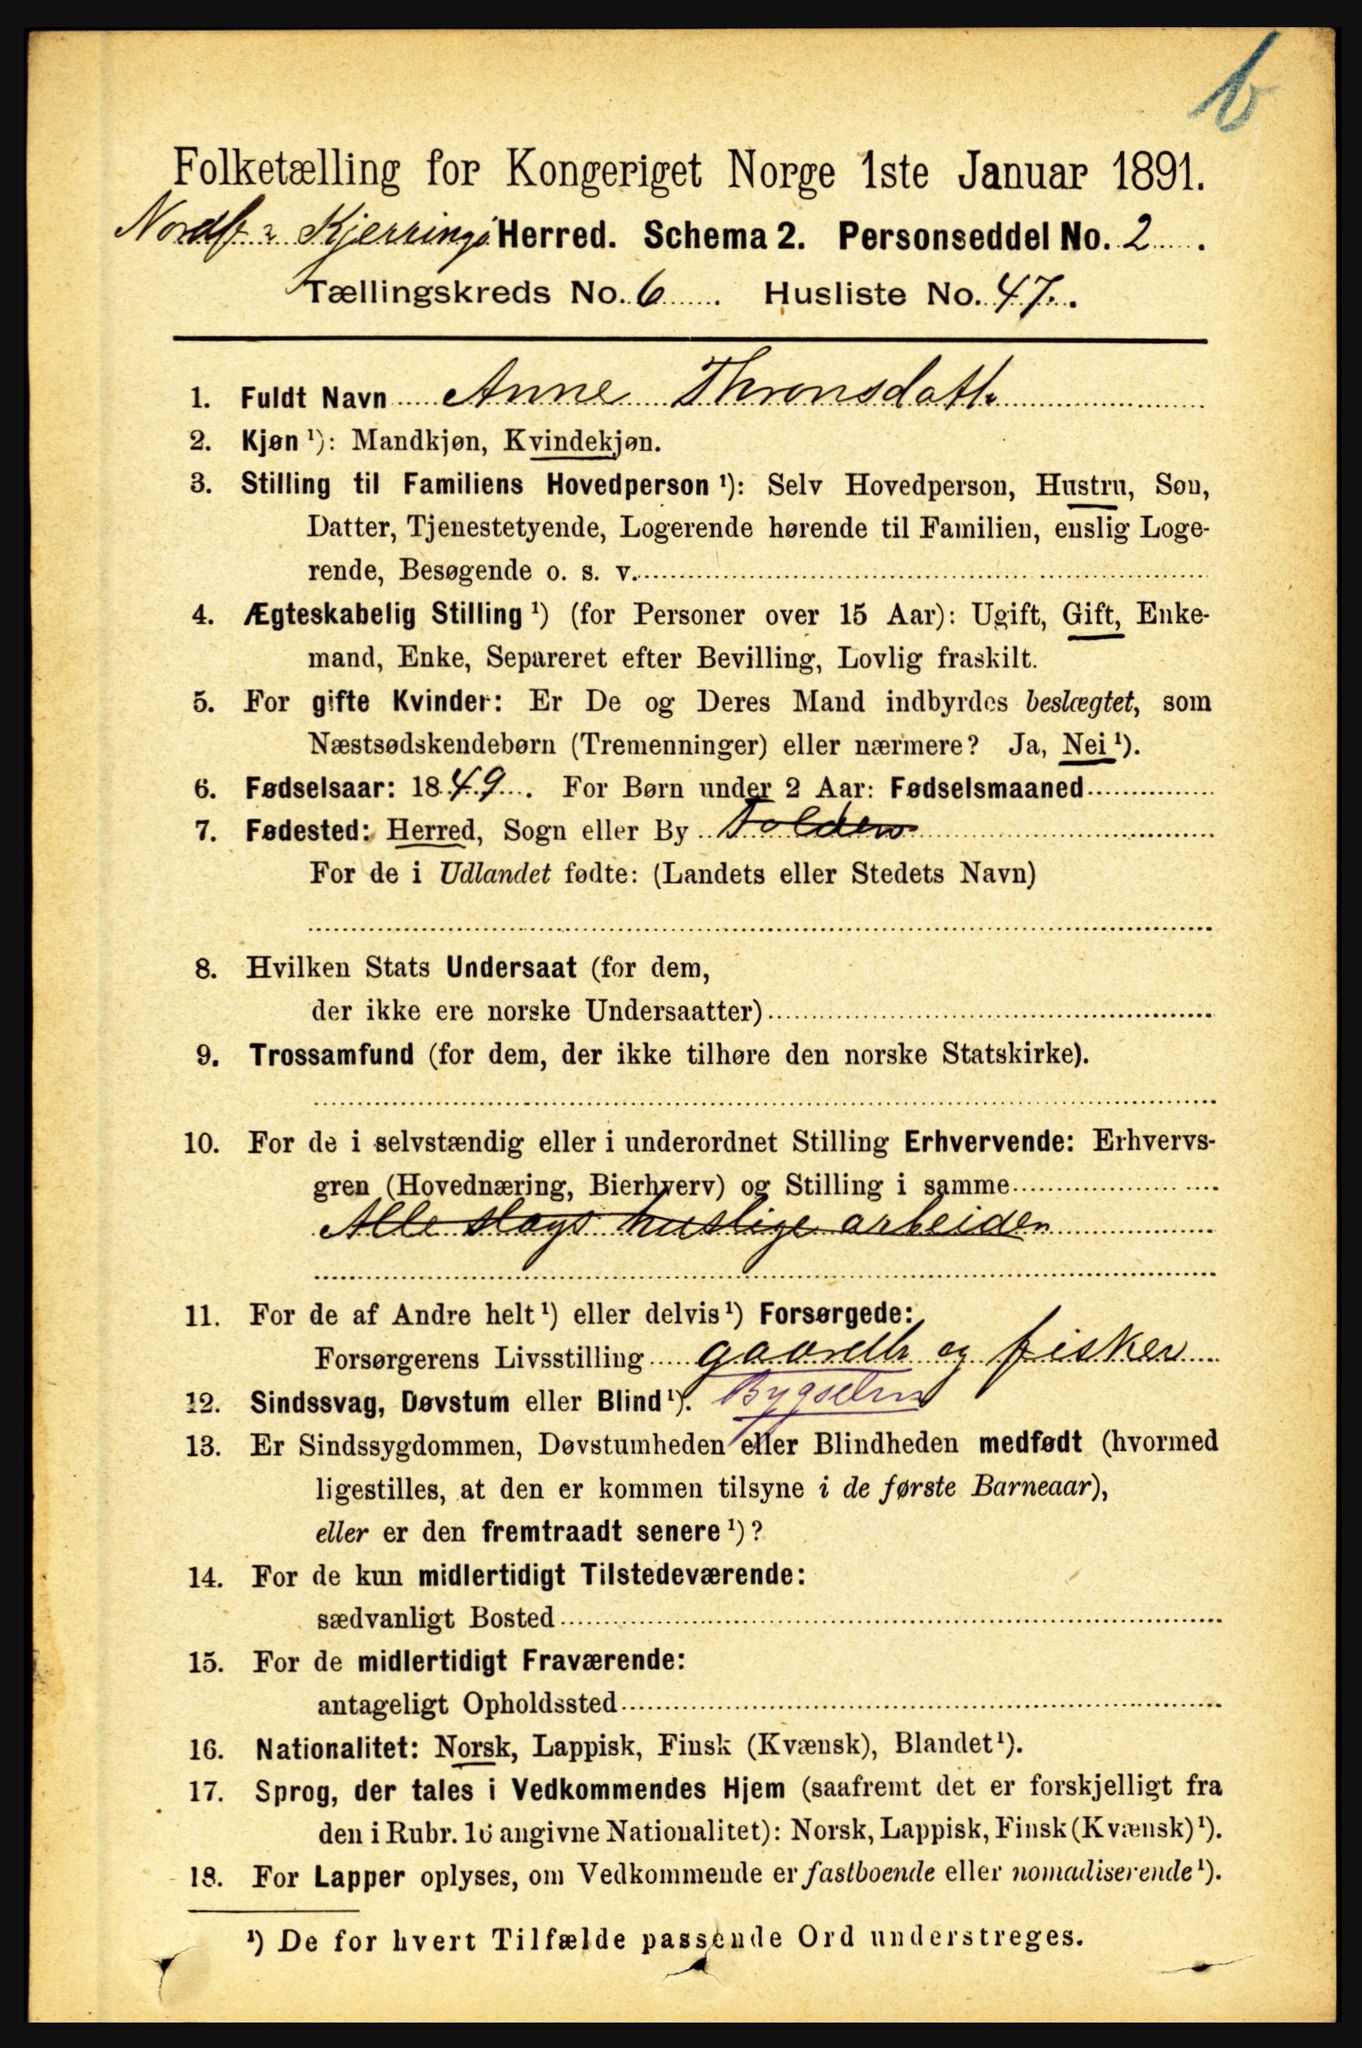 b
Folketælling for Kongeriget Norge 1ste Januar 1891.
Nordf. Kjerringö Herred. Schema 2. Personseddel No. 2.
Tællingskreds No. 6. Husliste No. 47.
1. Fuldt Navn Anne Thronsdatt.
2. Kjøn ¹): Mandkjøn, Kvindekjøn.
3. Stilling til Familiens Hovedperson ¹): Selv Hovedperson, Hustru, Søn,
Datter, Tjenestetyende, Logerende hørende til Familien, enslig Loge-
rende, Besøgende o. s. v.
4. Ægteskabelig Stilling ¹) (for Personer over 15 Aar): Ugift, Gift, Enke-
mand, Enke, Separeret efter Bevilling, Lovlig fraskilt.
5. For gifte Kvinder: Er De og Deres Mand indbyrdes beslægtet, som
Næstsødskendebørn (Tremenninger) eller nærmere? Ja, Nei ¹).
6. Fødselsaar: 1849. For Børn under 2 Aar: Fødselsmaaned
7. Fødested: Herred, Sogn eller By Folden
For de i Udlandet fødte: (Landets eller Stedets Navn)
8. Hvilken Stats Undersaat (for dem,
der ikke ere norske Undersaatter)
9. Trossamfund (for dem, der ikke tilhøre den norske Statskirke).
10. For de i selvstændig eller i underordnet Stilling Erhvervende: Erhvervs-
gren (Hovednæring, Bierhverv) og Stilling i samme
Alle slags huslige arbeiden
11. For de af Andre helt ¹) eller delvis ¹) Forsørgede:
Forsørgerens Livsstilling og fisker
12. Sindssvag, Døvstum eller Blind ¹).
13. Er Sindssygdommen, Døvstumheden eller Blindheden medfødt (hvormed
ligestilles, at den er kommen tilsyne i de første Barneaar),
eller er den fremtraadt senere ¹)?
14. For de kun midlertidigt Tilstedeværende:
sædvanligt Bosted
15. For de midlertidigt Fraværende:
antageligt Opholdssted
16. Nationalitet: Norsk, Lappisk, Finsk (Kvænsk), Blandet ¹).
17. Sprog, der tales i Vedkommendes Hjem (saafremt det er forskjelligt fra
den i Rubr. 16 angivne Nationalitet): Norsk, Lappisk, Finsk (Kvænsk) ¹).
18. For Lapper oplyses, om Vedkommende er fastboende eller nomadiserende ¹).
¹) De for hvert Tilfælde passende Ord understreges.